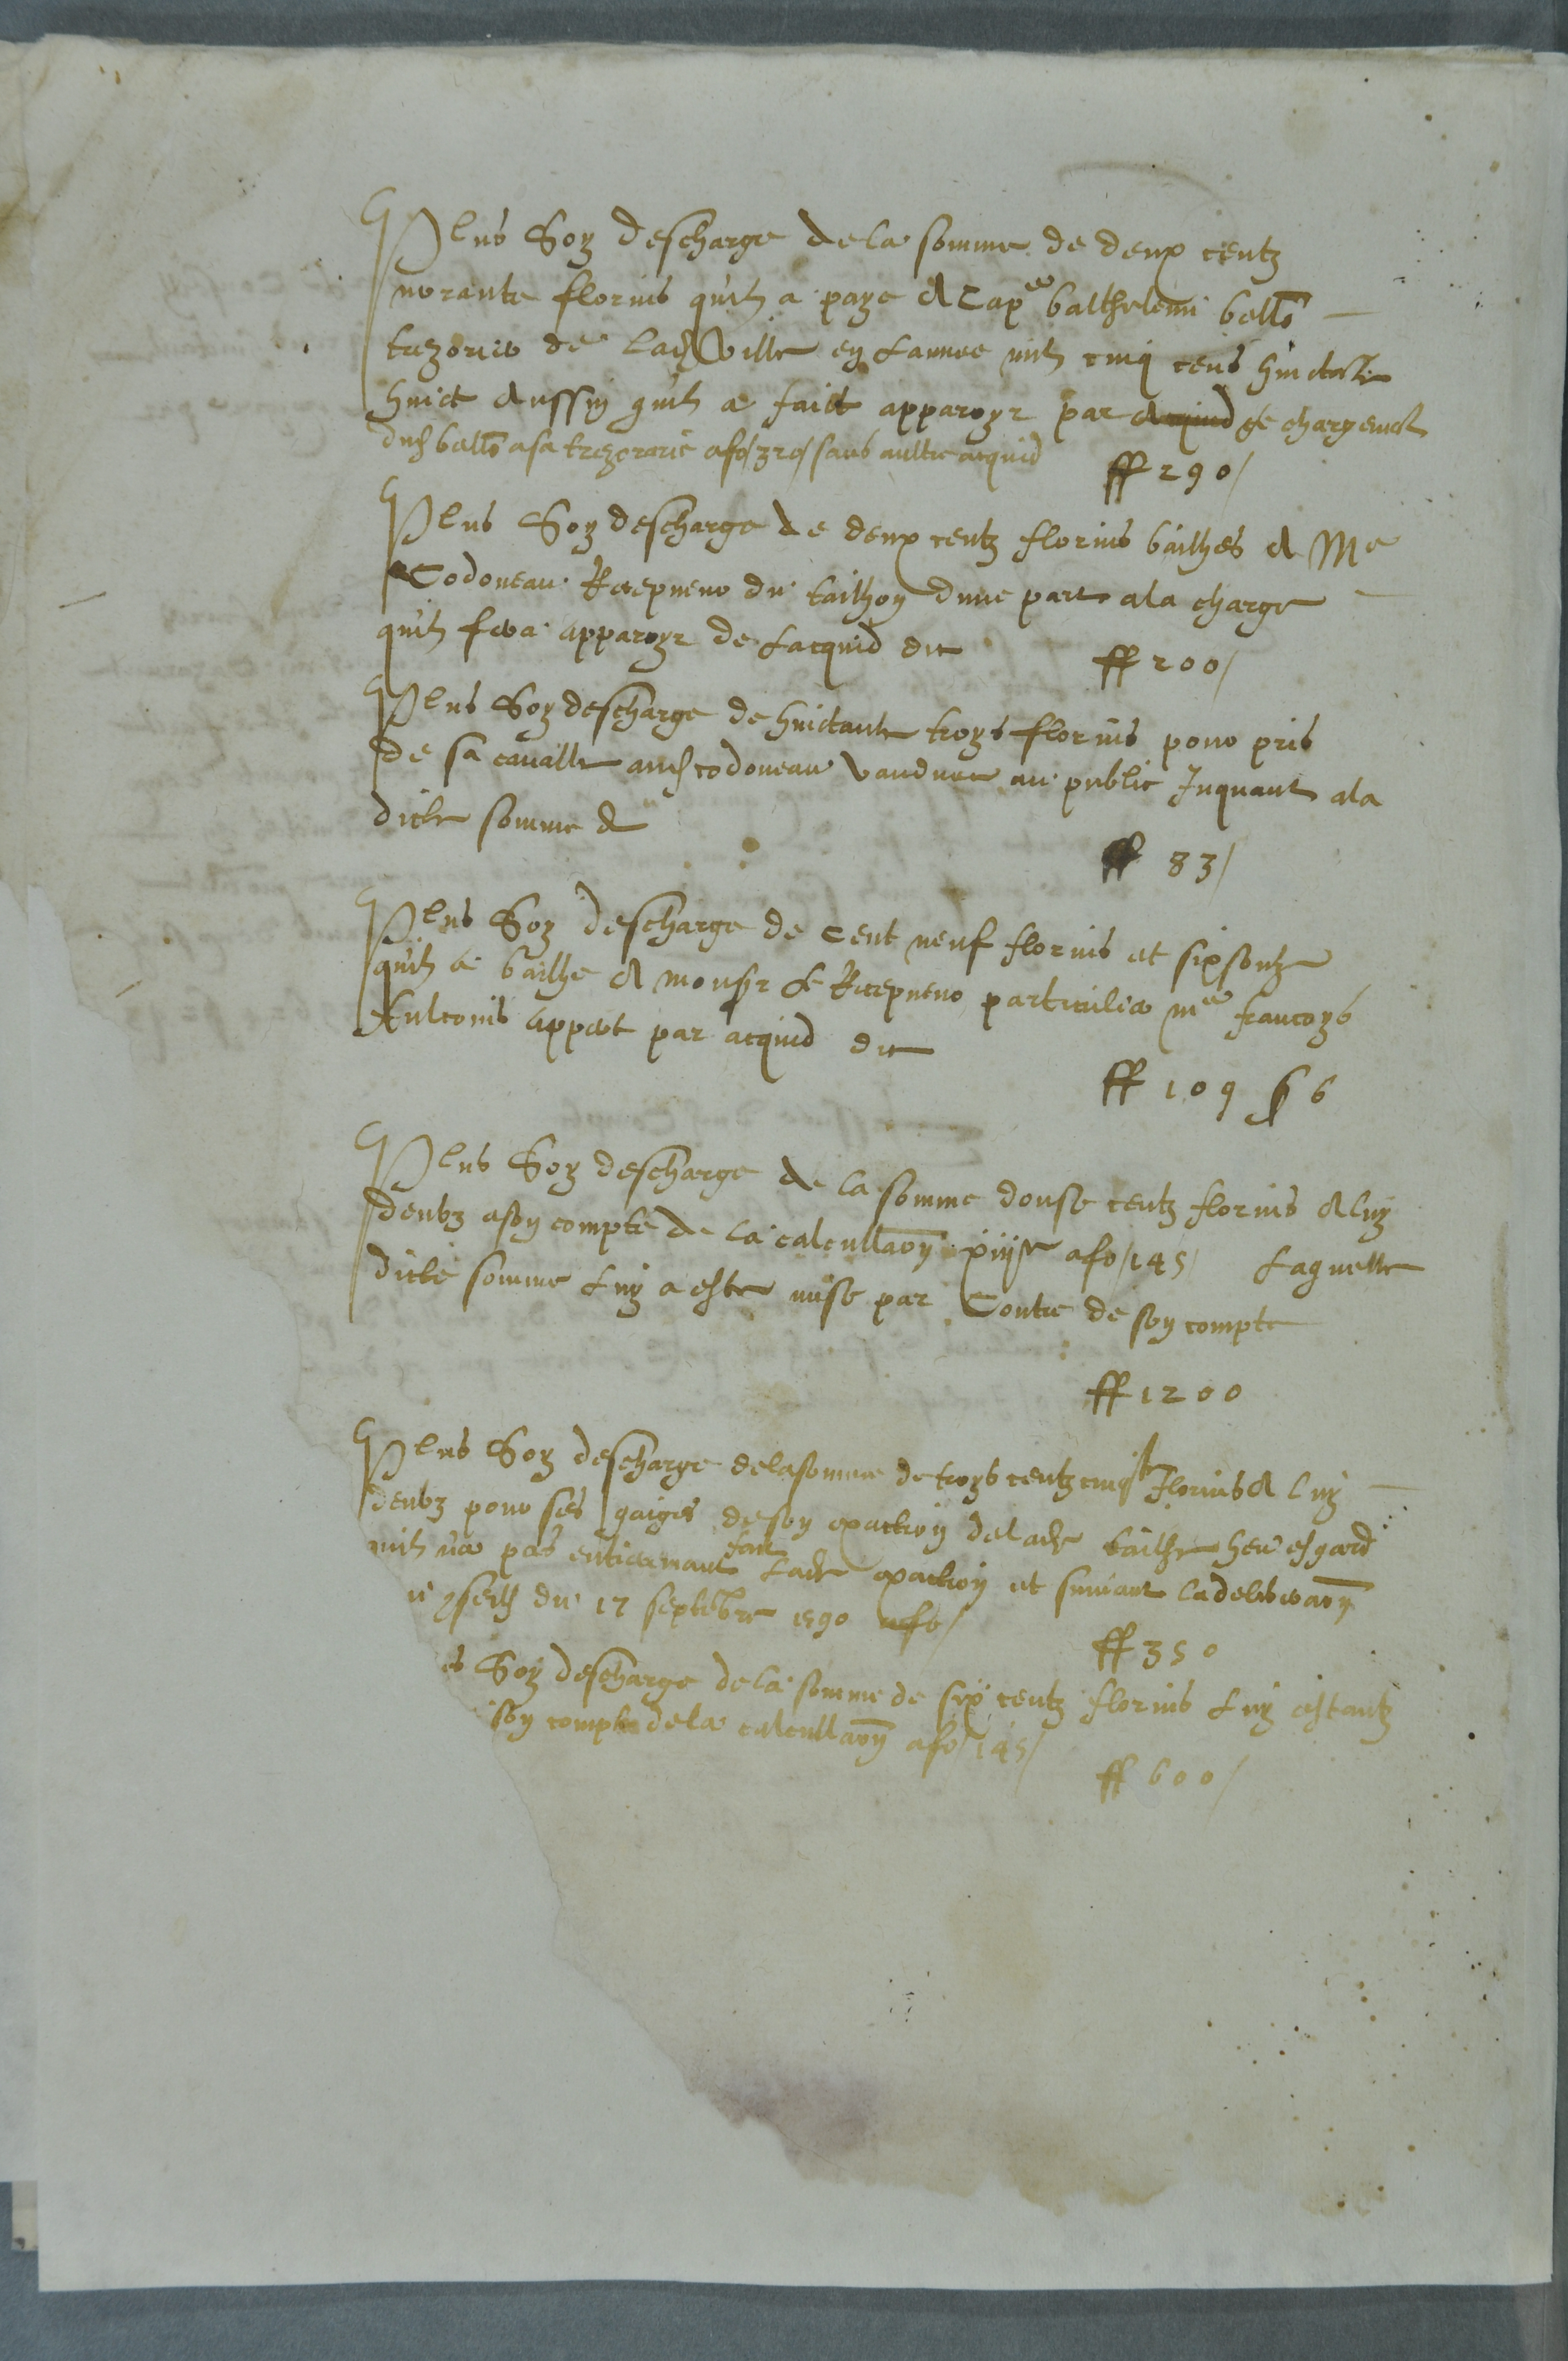 Plus Soy descharge de la somme de deux centz
norante florins quil a paye A Cap.ne balthelemi bello
trezorier de Lad Ville en Lannee mil cinq cens huictante
huict Aussin quil a faict apparoyr par acquid ge chargement
dud bello a sa trezorarie a fo/320/ sans aultre acquid ff 290/
Plus Soy descharge de deux centz florins bailhes A Me
Codoneau Recepueur du tailhon dune part a la charge
quil fera apparoyr de Lacquid cy ff 200/
Plus Soy descharge de huictante troys florins pour pris
de sa cavalle aud codoneau vandue au public Inquant a la
dicte somme de
ff 83/
Plus Soy descharge de cent neuf florins et six soulz
quil a bailhe A monsr Le Recepueur particulier me francoys
appert par acquid cy
ff 109 s 6
Plus Soy descharge de la somme douse centz florins A luy
deubz a son compte de la calcullaon xiiije a fo/145/ Laquelle
dicte somme Luy a este mise par Contre de son compte
ff 1200
Plus Soy descharge de la somme de troys centz cinqte florins A luy
deubz pour ses gaiges de son exaction de lade tailhe heu esgard
quil na pas entieremant faict Lade exaction et suivant la deliberaon
du 17 septebre 1590 a fo/
ff 350
es Soy descharge de la somme de six centz florins Luy estantz
son compte de la calcullaon a fo/145/
ff 600/